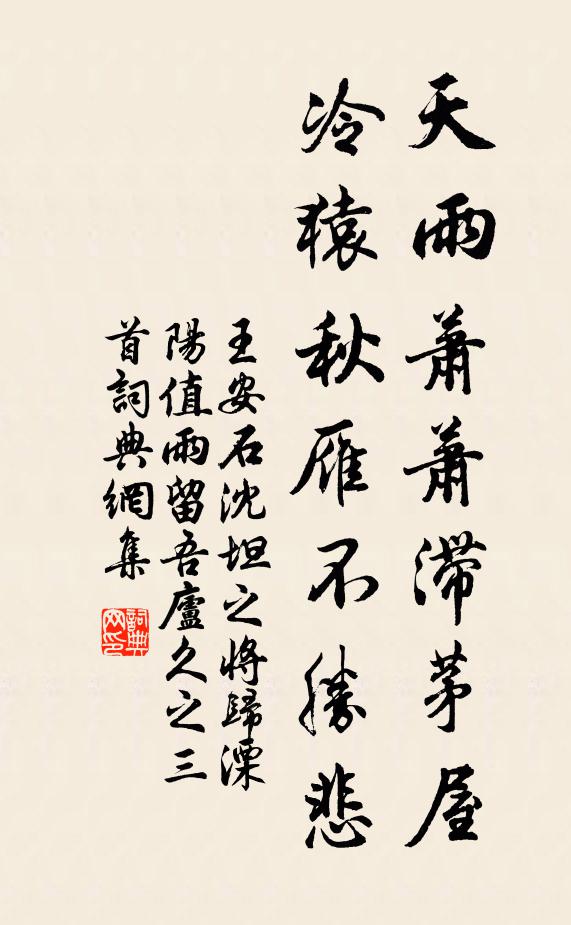 天雨蕭蕭滯茅屋
冷猿秋雁不勝悲
王安石沈坦之將歸溧
陽值雨留吾廬久之三
首詞典網集
詞典网印